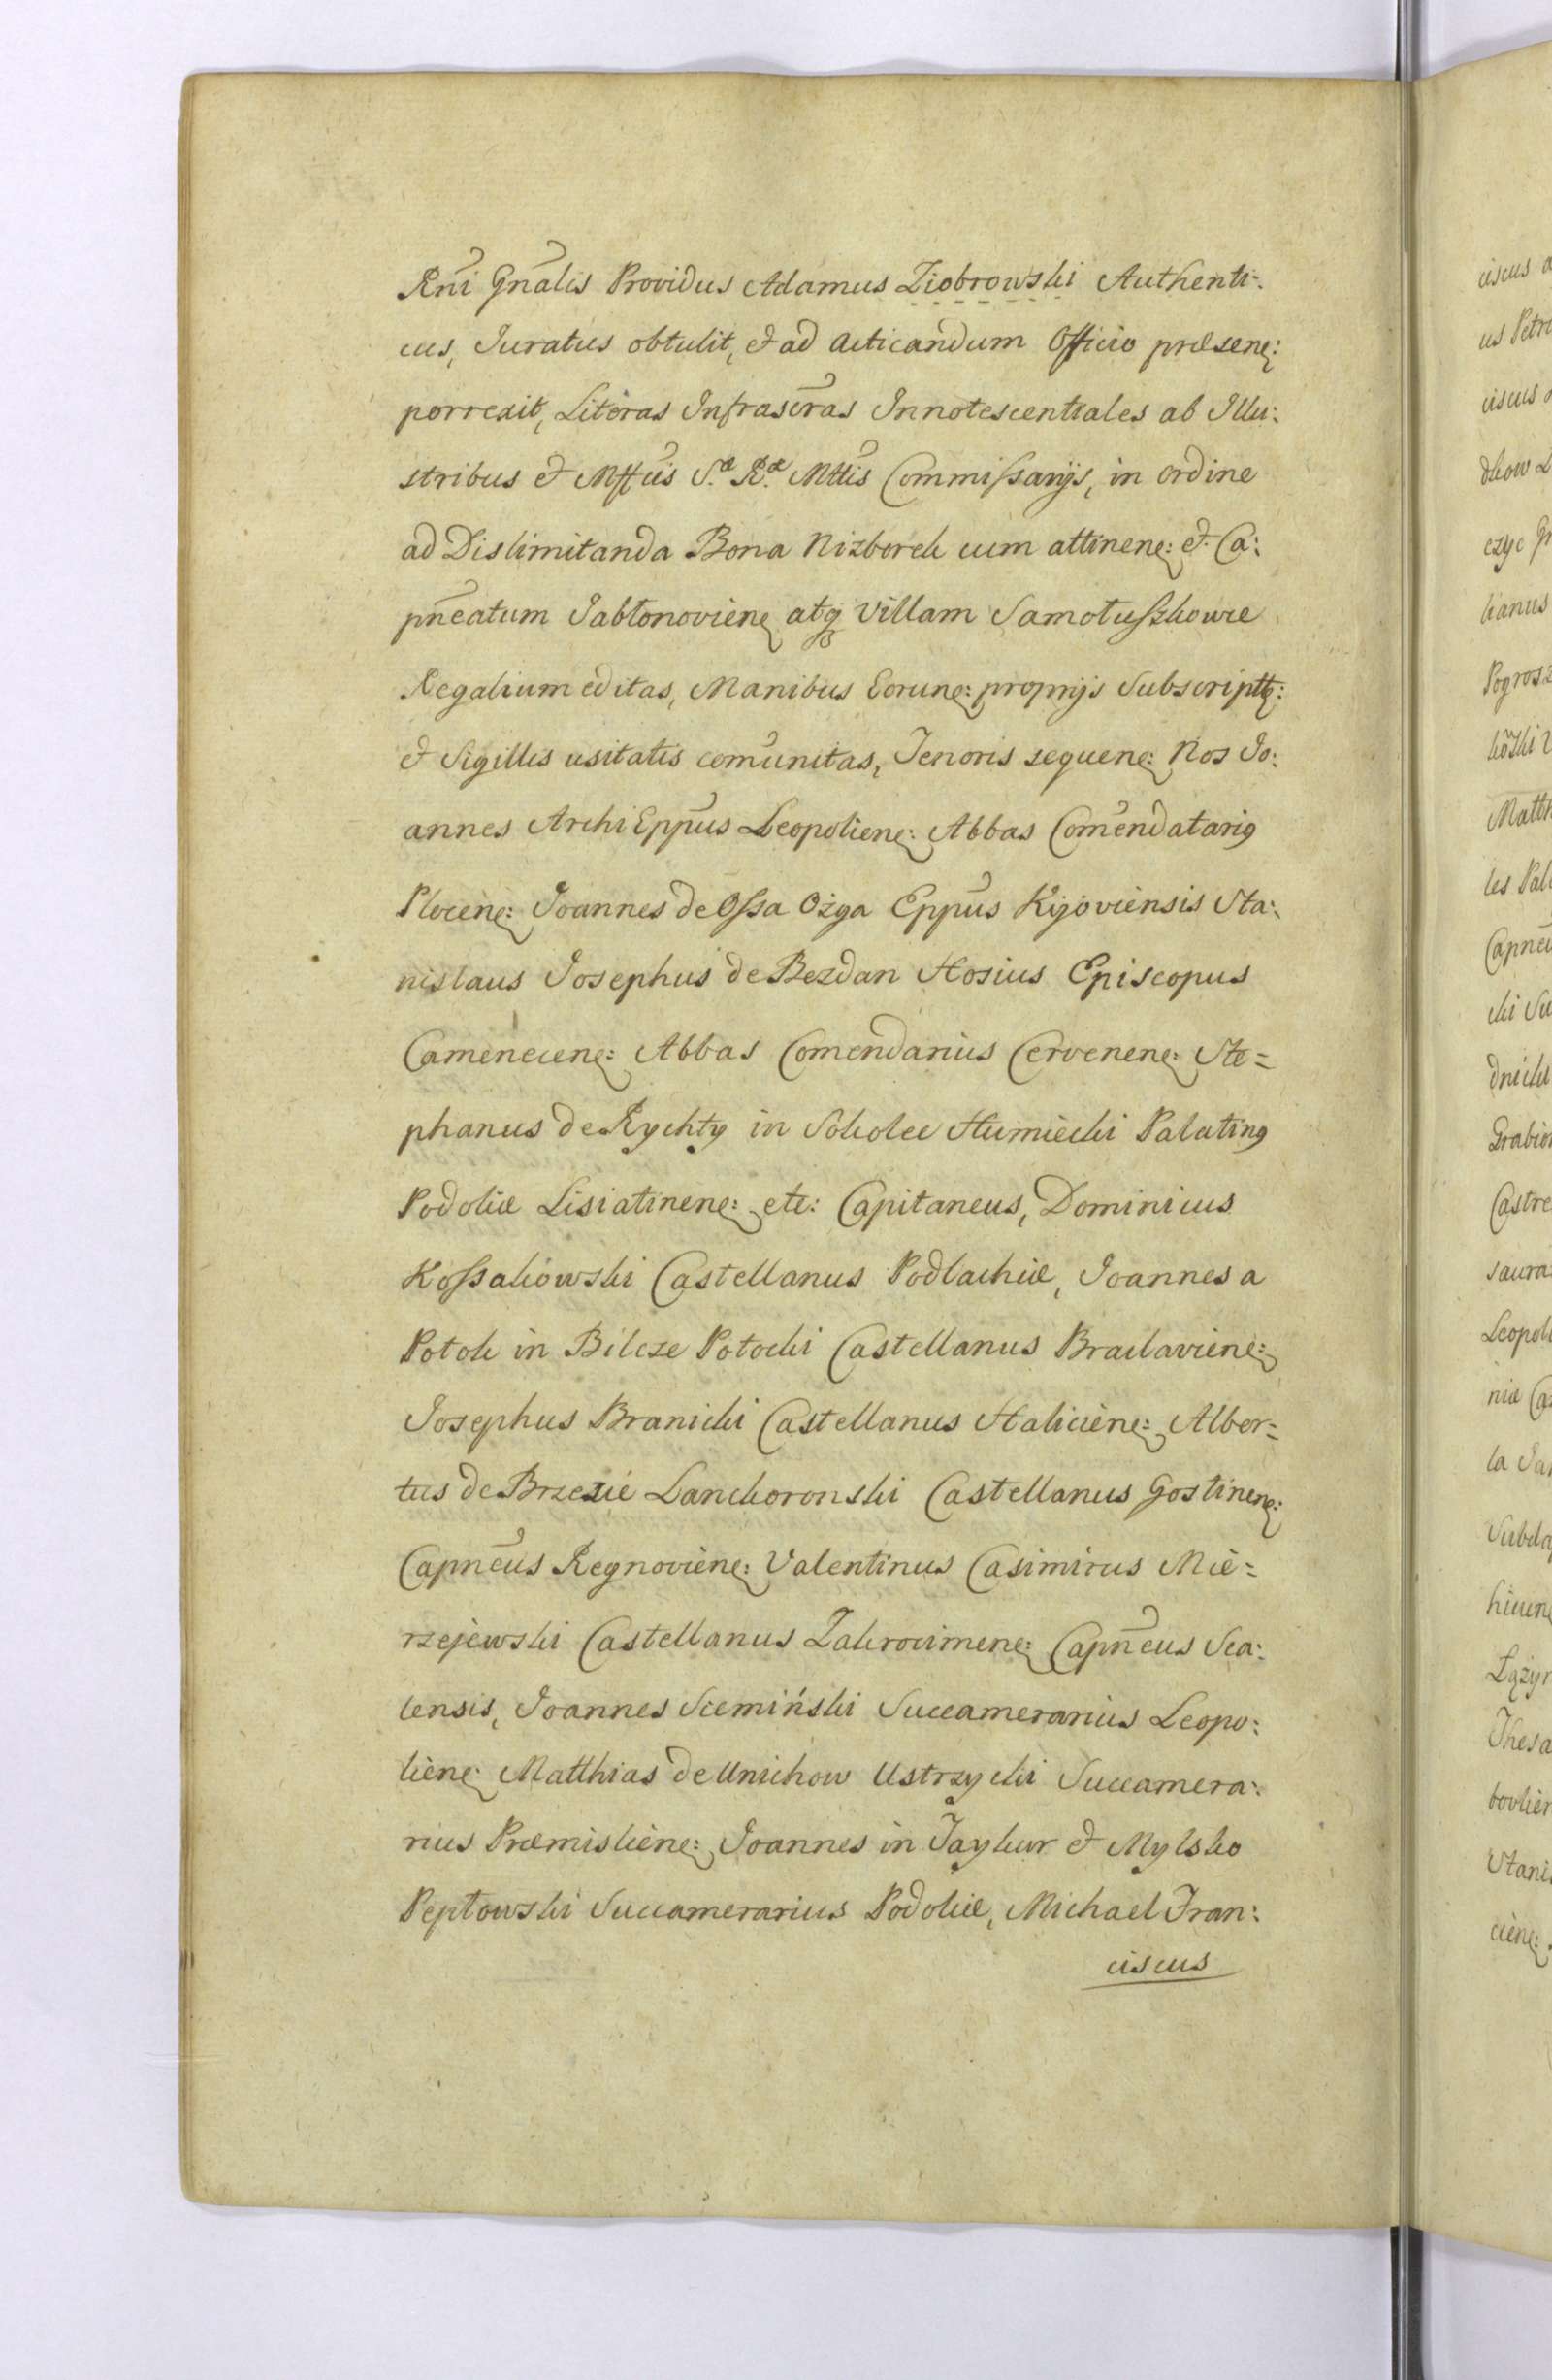 Rñi Gñalis Providus Adamus Ziobrowski Authenti:
cus, Juratus obtulit, et ad acticandum Officio præsenę:
porrexit, Literas Infrascr̃as Innotescentiales ab Illu:
stribus et Mffũs S.æ R.æ Mttis Commissarijs, in ordine
ad Dislimitanda Bona Nizborek cum attinenę: et Ca:
pñeatum Jabłonovienę atq̃ Villam Samołuszkowce
Regalium editas, Manibus Eorunę: proprijs Subscriptę:
et Sigillis usitatis com̃unitas, Tenoris sequenę: Nos Jo:
annes ArchiEpp̃us Leopolienę: Abbas Com̃endatari9
Plocenę: Joannes de Ossa Ożga Epp̃us Kijoviensis Sta:
nislaus Josephus de Bezdan Hosius Episcopus
Camenecenę: Abbas Comendarius Cervenenę: Ste=
phanus de Rychty in Sokolec Humiecki Palatin9
Podoliæ Lisiatinenę: etc: Capitaneus, Dominicus
Kossakowski Castellanus Podlachiæ, Joannes a
Potok in Bilcze Potocki Castellanus Braclavienę:
Josephus Branicki Castellanus Halicienę: Alber=
tus de Brzezie Lanckoronski Castellanus Gostinenę:
Capnẽus Regnovienę: Valentinus Casimirus Mie=
rzejewski Castellanus Zakrocimenę: Capñeus Sca:
lensis, Joannes Siemiński Succamerarius Leopo:
lienę: Matthias de Unichow Ustrzycki Succamera:
rius Præmislienę: Joannes in Taykur et Mylsko
Pepłowski Succamerarius Podoliæ, Michael Fran:
ciscus